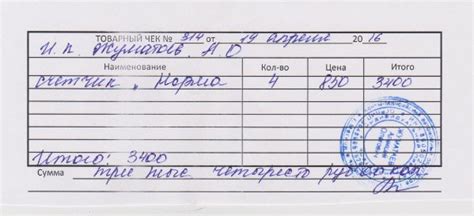 ТОВАРНЫЙ ЧЕК № 314 от 19 апреля 2016
И.п. Жуматов А.О
Наименование Кол-во Цена Итого
счетчик "Норма 4 850 3400
Итого: 3400
Сумма три тыс четыресто руб 00 коп